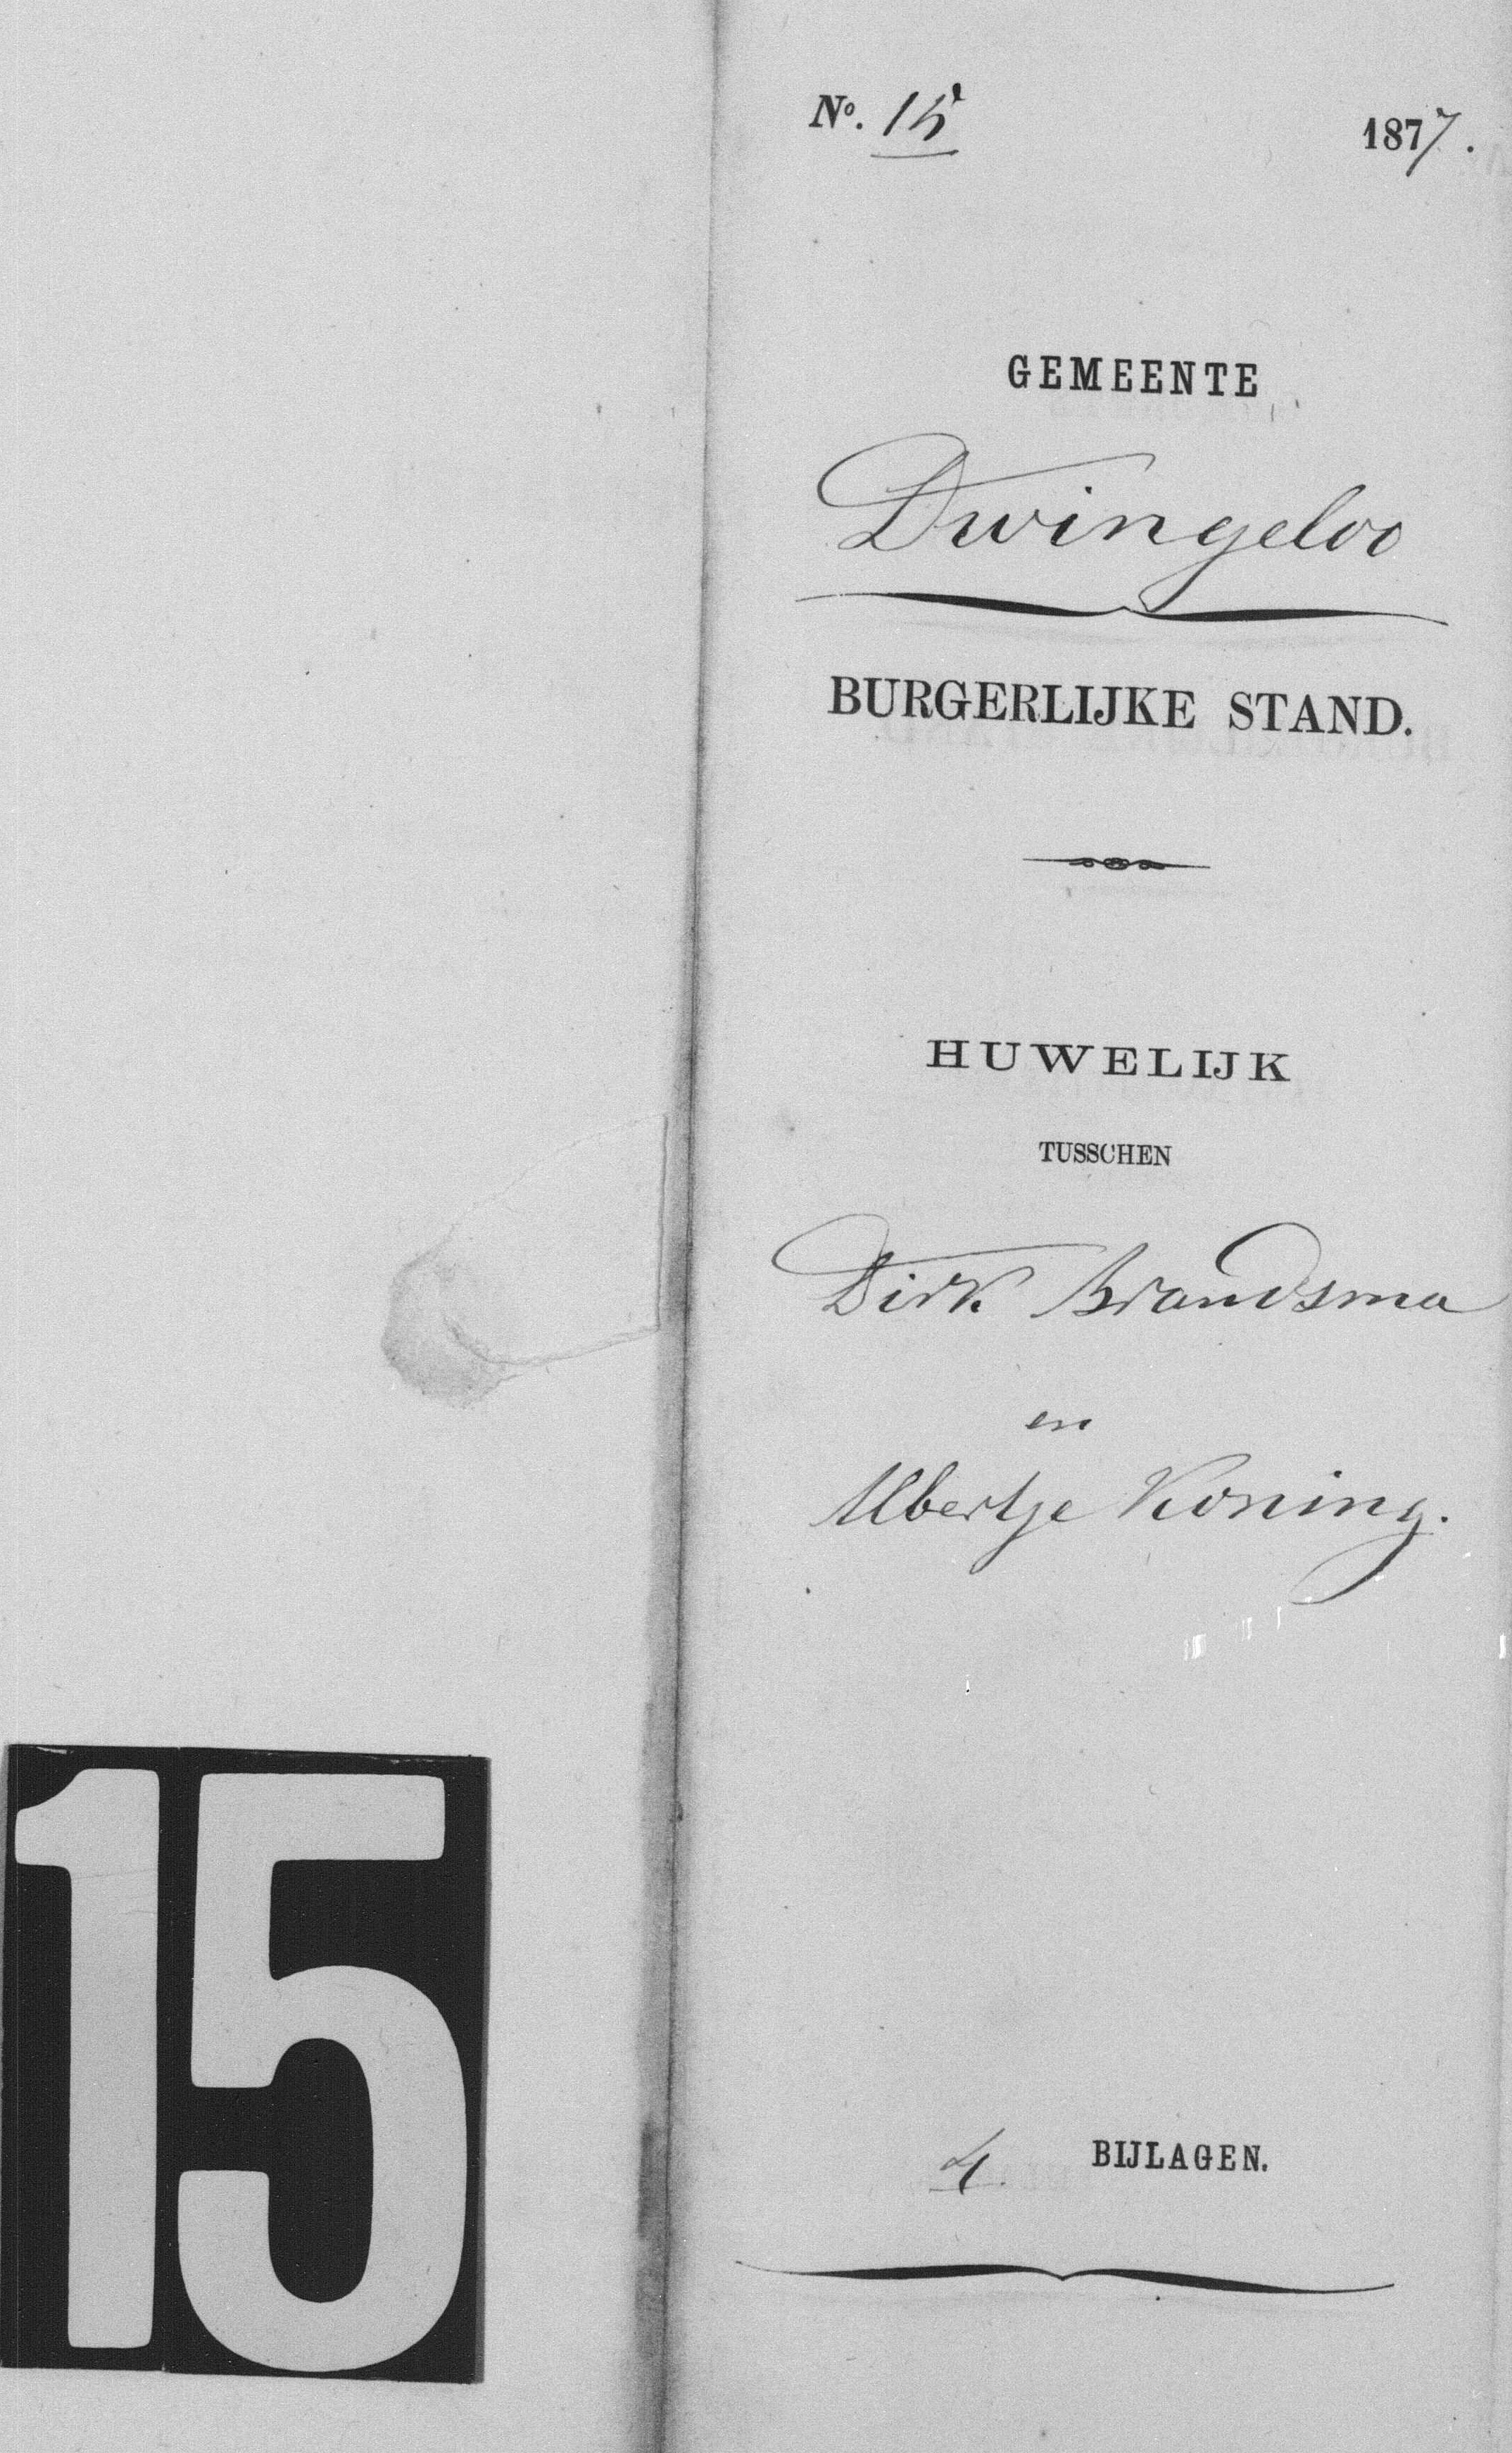 No. 15 1877.
GEMEENTE
Dwingeloo
BURGERLIJKE STAND.
HUWELIJK
TUSSCHEN
Dirk Brandsma
en
Albertje Koning.
4 BIJLAGEN.
15